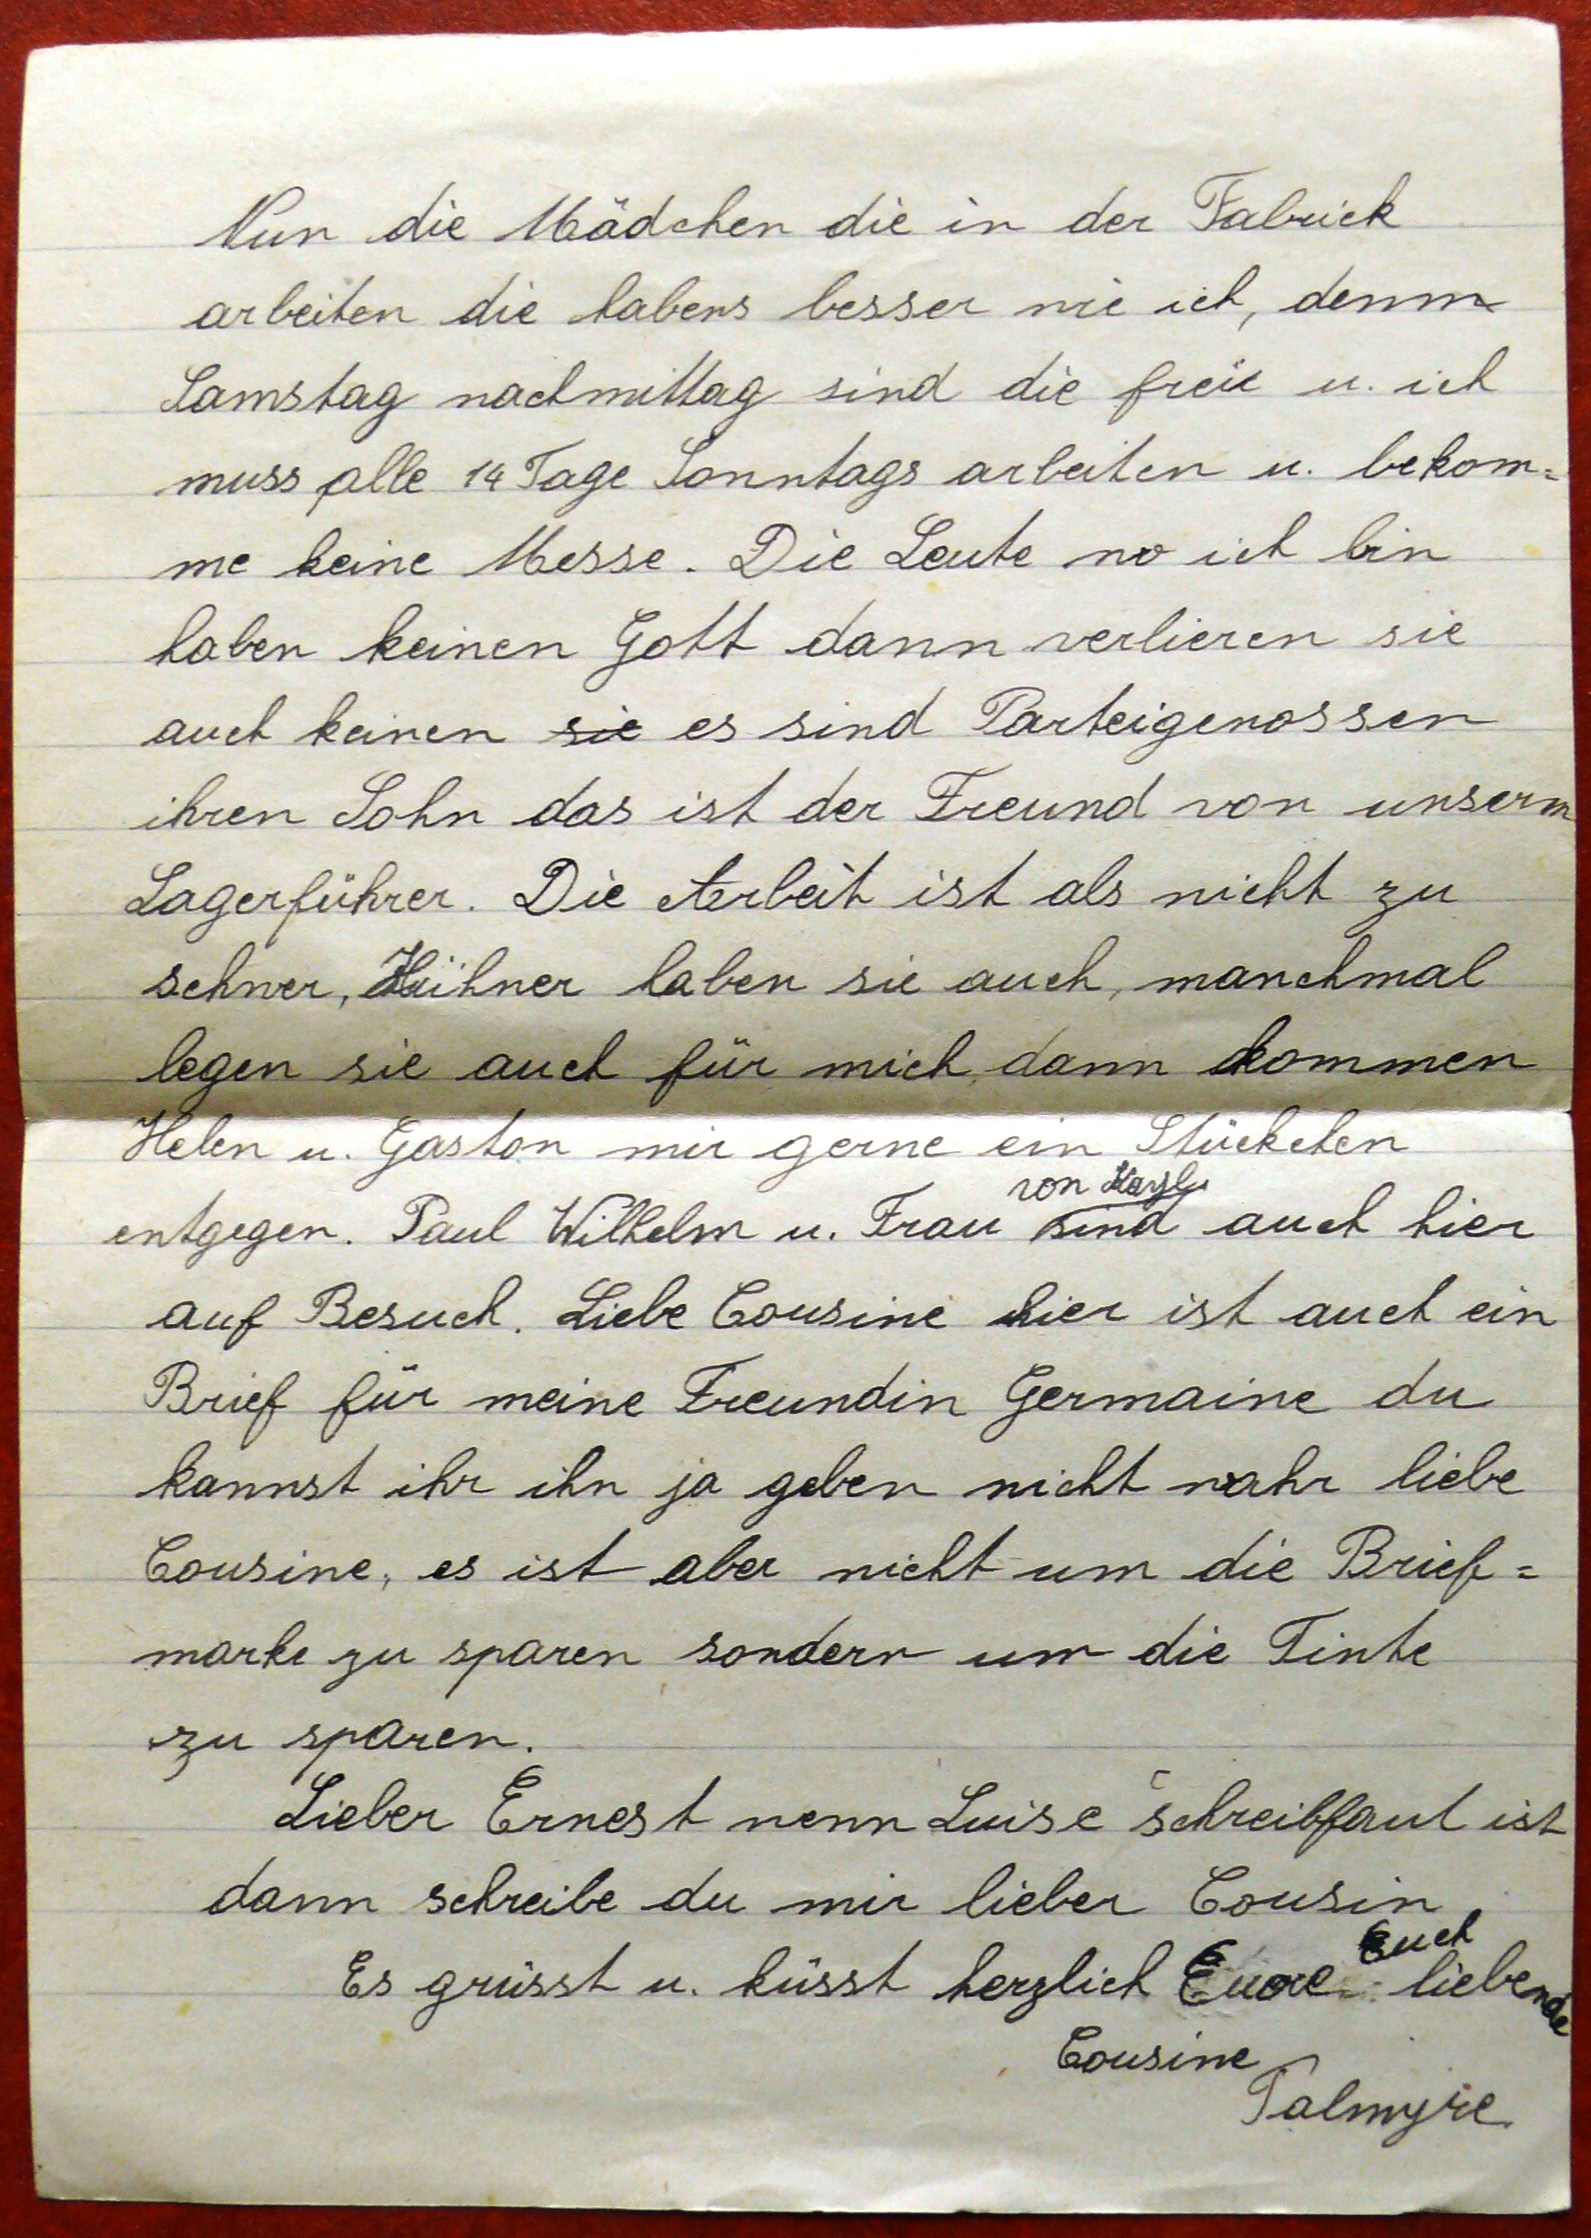 Nun die Mädchen die in der Fabrick
arbeiten die habens besser wie ich, denn
Samstag nachmittag sind die frei u. ich
muss alle 14 Tage Sonntags arbeiten u. bekom=
me keine Messe. Die Leute wo ich bin
haben keinen Gott dann verlieren sie
auch keinen sie es sind Parteigenossen
ihren Sohn das ist der Freund von unserm
Lagerführer. Die Arbeit ist als nicht zu
schwer, Hühner haben sie auch, manchmal
legen sie auch für mich, dann kommen
Helen u. Gaston mir gerne ein Stückchen
von Kayl
entgegen. Paul Wilhelm u. Frau sind auch hier
auf Besuch. Liebe Cousine hier ist auch ein
Brief für meine Freundin Germaine du
kannst ihr ihn ja geben nicht wahr liebe
Cousine, es ist aber nicht um die Brief=
marke zu sparen sondern um die Tinte
zu sparen.
Lieber Ernest wenn Luise schreibfaul ist
dann schreibe du mir lieber Cousin
Es grüsst u. küsst herzlich Eure Euch liebende
Cousine
Palmyre